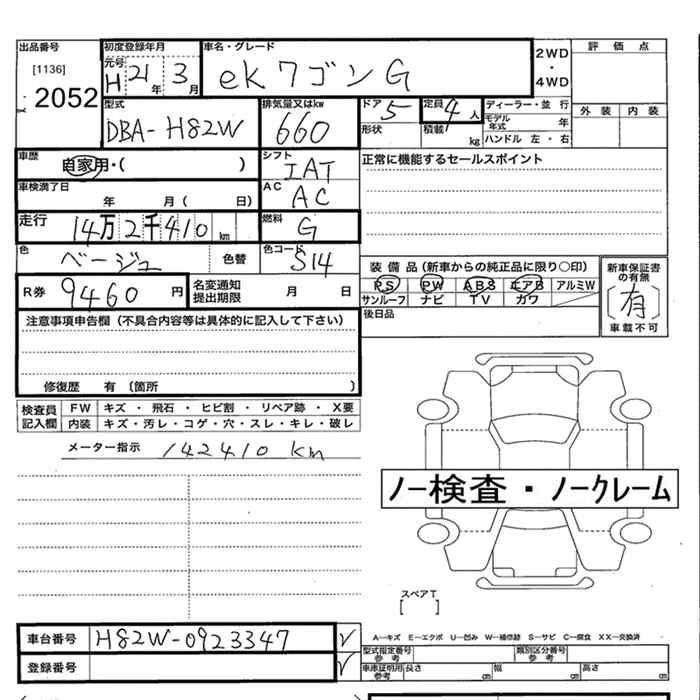 出品番号 初度登録年月 車名・グレード 2WD・4WD 評価点
[1136] 元号 H 21年 3月 ekワゴンG
2052 外装 内装
型式 排気量又はkw ドア 5 定員 4人 ディーラー・並行
DBA-H82W 660 形状 積載 kg モデル年式 年
ハンドル 左・右
車歴 自家用・( ) シフト IAT 正常に機能するセールスポイント
車検満了日 年 月( 日) AC AC
走行 14万2千410km 燃料 G
色 ベージュ 色替 色コード S14
装備品(新車からの純正品に限り○印) 新車保証書の有無
R券 9460円 名変通知提出期限 月 日 PS PW ABS エアB アルミW [有]
サンルーフ ナビ TV カワ 車載不可
注意事項申告欄(不具合内容等は具体的に記入して下さい) 後日品
修復歴 有 〔箇所 〕
検査員記入欄 FW キズ・飛石・ヒビ割・リペア跡・X要
内装 キズ・汚レ・コゲ・穴・スレ・キレ・破レ
メーター指示 142410 km
ノー検査・ノークレーム
スペアT
[ ]
車台番号 H82W-0923347 レ A―キズ E―エクボ U―凹み W―補修跡 S―サビ C―腐食 XX―交換済
登録番号 レ 型式指定番号 参考 類別区分番号 参考
車庫証明用 参考 長さ cm 幅 cm 高さ cm